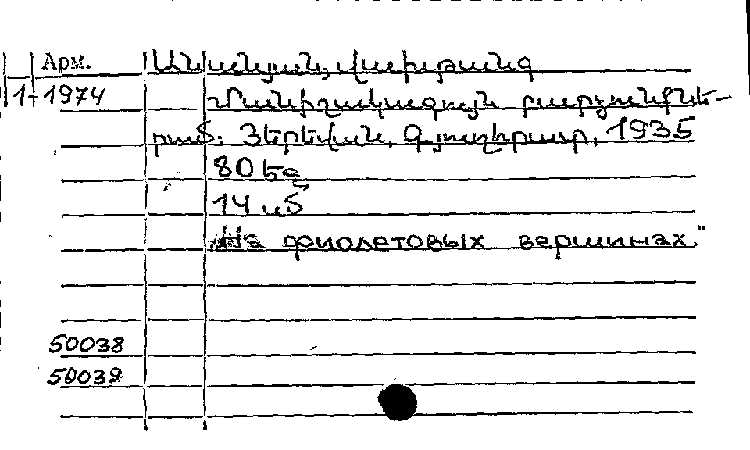 Арм.
Անանյան, Վախթանգ
1-1974
Մանիշակագույն բարձունքնե-
րում: Յերեվան, Գյուղհրատ, 1935
80 եջ
14 սմ
„На фиолетовых вершинах"
50038
50039